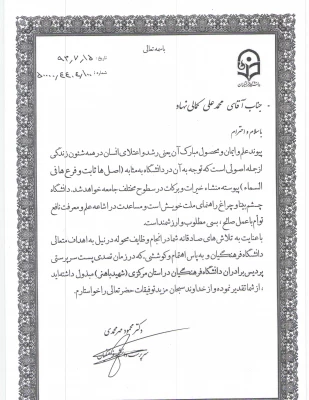 باسمه تعالی
تاریخ: ۹۳,۷,۱۵
شماره: ۵۰۰۰۰,۴۴۰,۴,۱۰۰
جناب آقای محمدعلی کمالی نهاد
با سلام و احترام
پیوند علم و ایمان و محصول مبارک آن یعنی رشد و اعتلای انسان در همه شئون زندگی
از جمله اصولی است که توجه به آن در دانشگاه به مثابه (اصلها ثابت و فرعها فی
السماء) پیوسته منشاء خیرات و برکات در سطوح مختلف جامعه خواهد شد. دانشگاه
چشم بینا و چراغ راهنمای ملت خویش است و مساعدت در اشاعه علم و معرفت نافع
توأم با عمل صالح، بسی مطلوب و ارزشمند است.
با عنایت به تلاش‌های صادقانه شما در انجام وظایف محوله در نیل به اهداف متعالی
دانشگاه فرهنگیان و به پاس اهتمام و کوششی که در زمان تصدی پست سرپرستی
پردیس برادران دانشگاه فرهنگیان در استان مرکزی (شهید باهنر) مبذول داشته‌اید
، از شما تقدیر نموده و از خداوند سبحان مزید توفیقات حضرتعالی را خواستارم.
دکتر محمود مهرمحمدی
سرپرست دانشگاه فرهنگیان